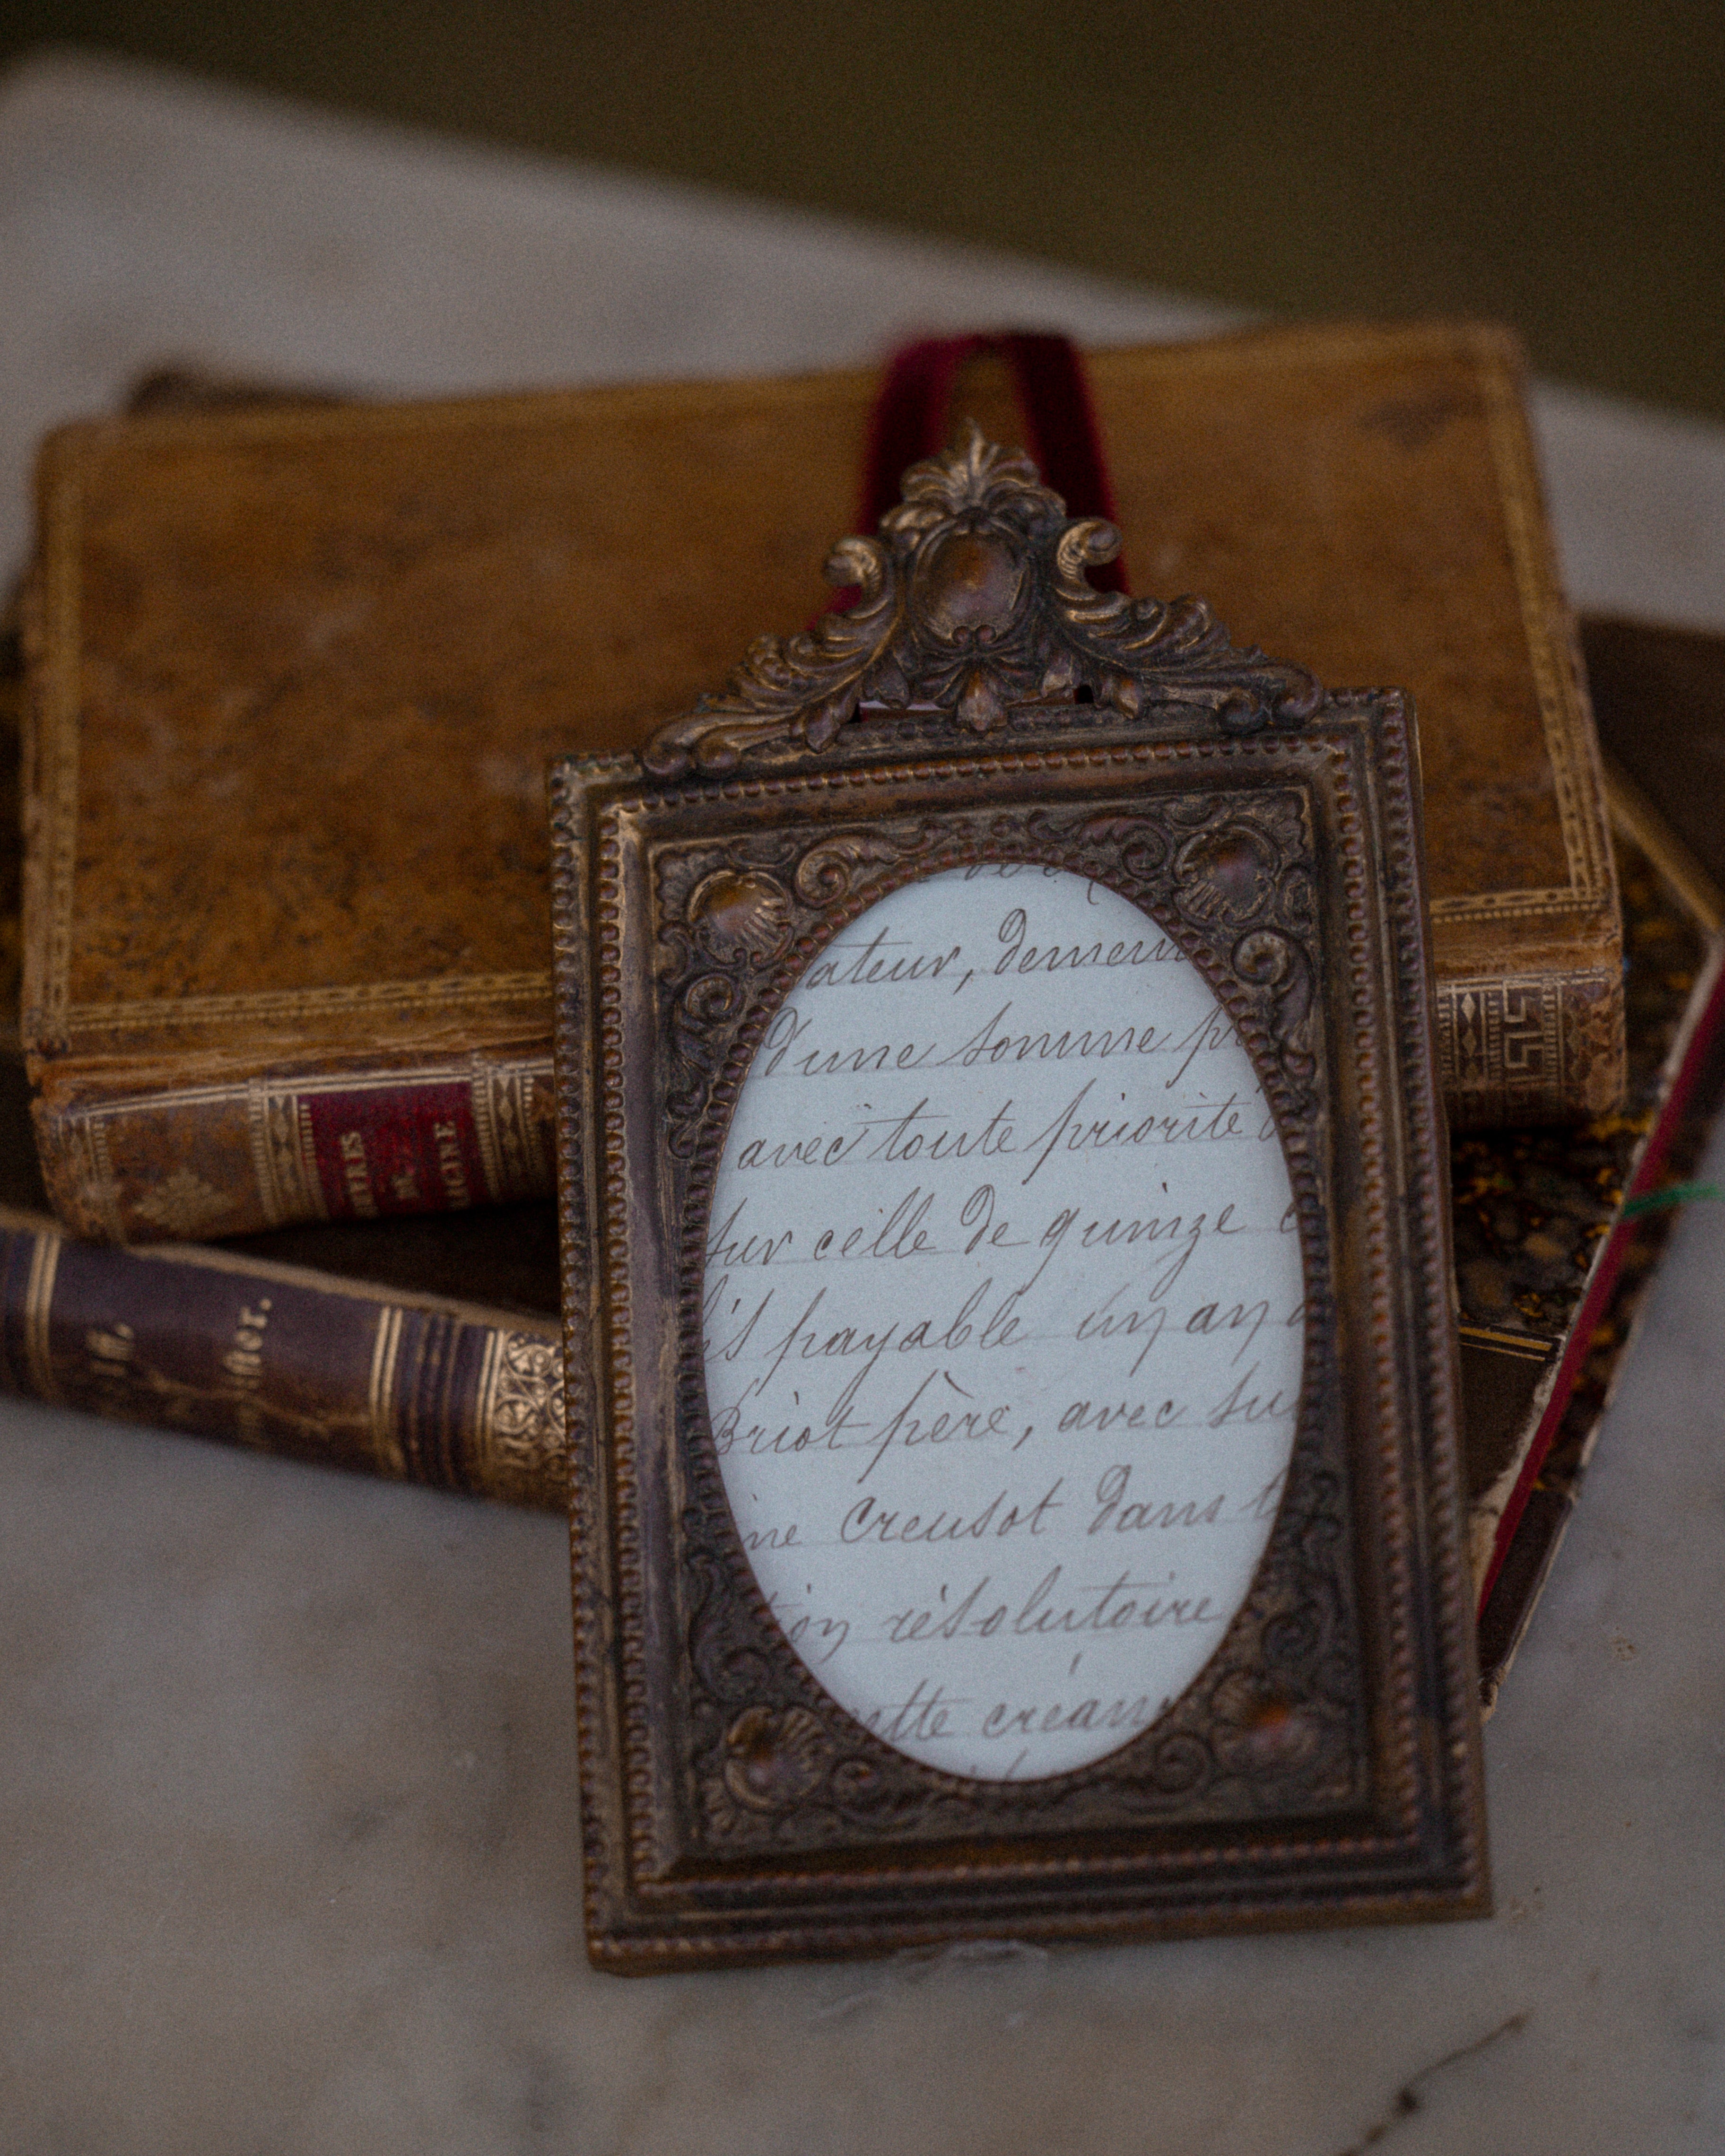 ateur, demeur
d'une somme pr
avec toute priorité
sur celle de quinze c
payable un an a
Briot père, avec su
ine Creusot dans l
tion résolutoire
ette créan
DE
RACINE